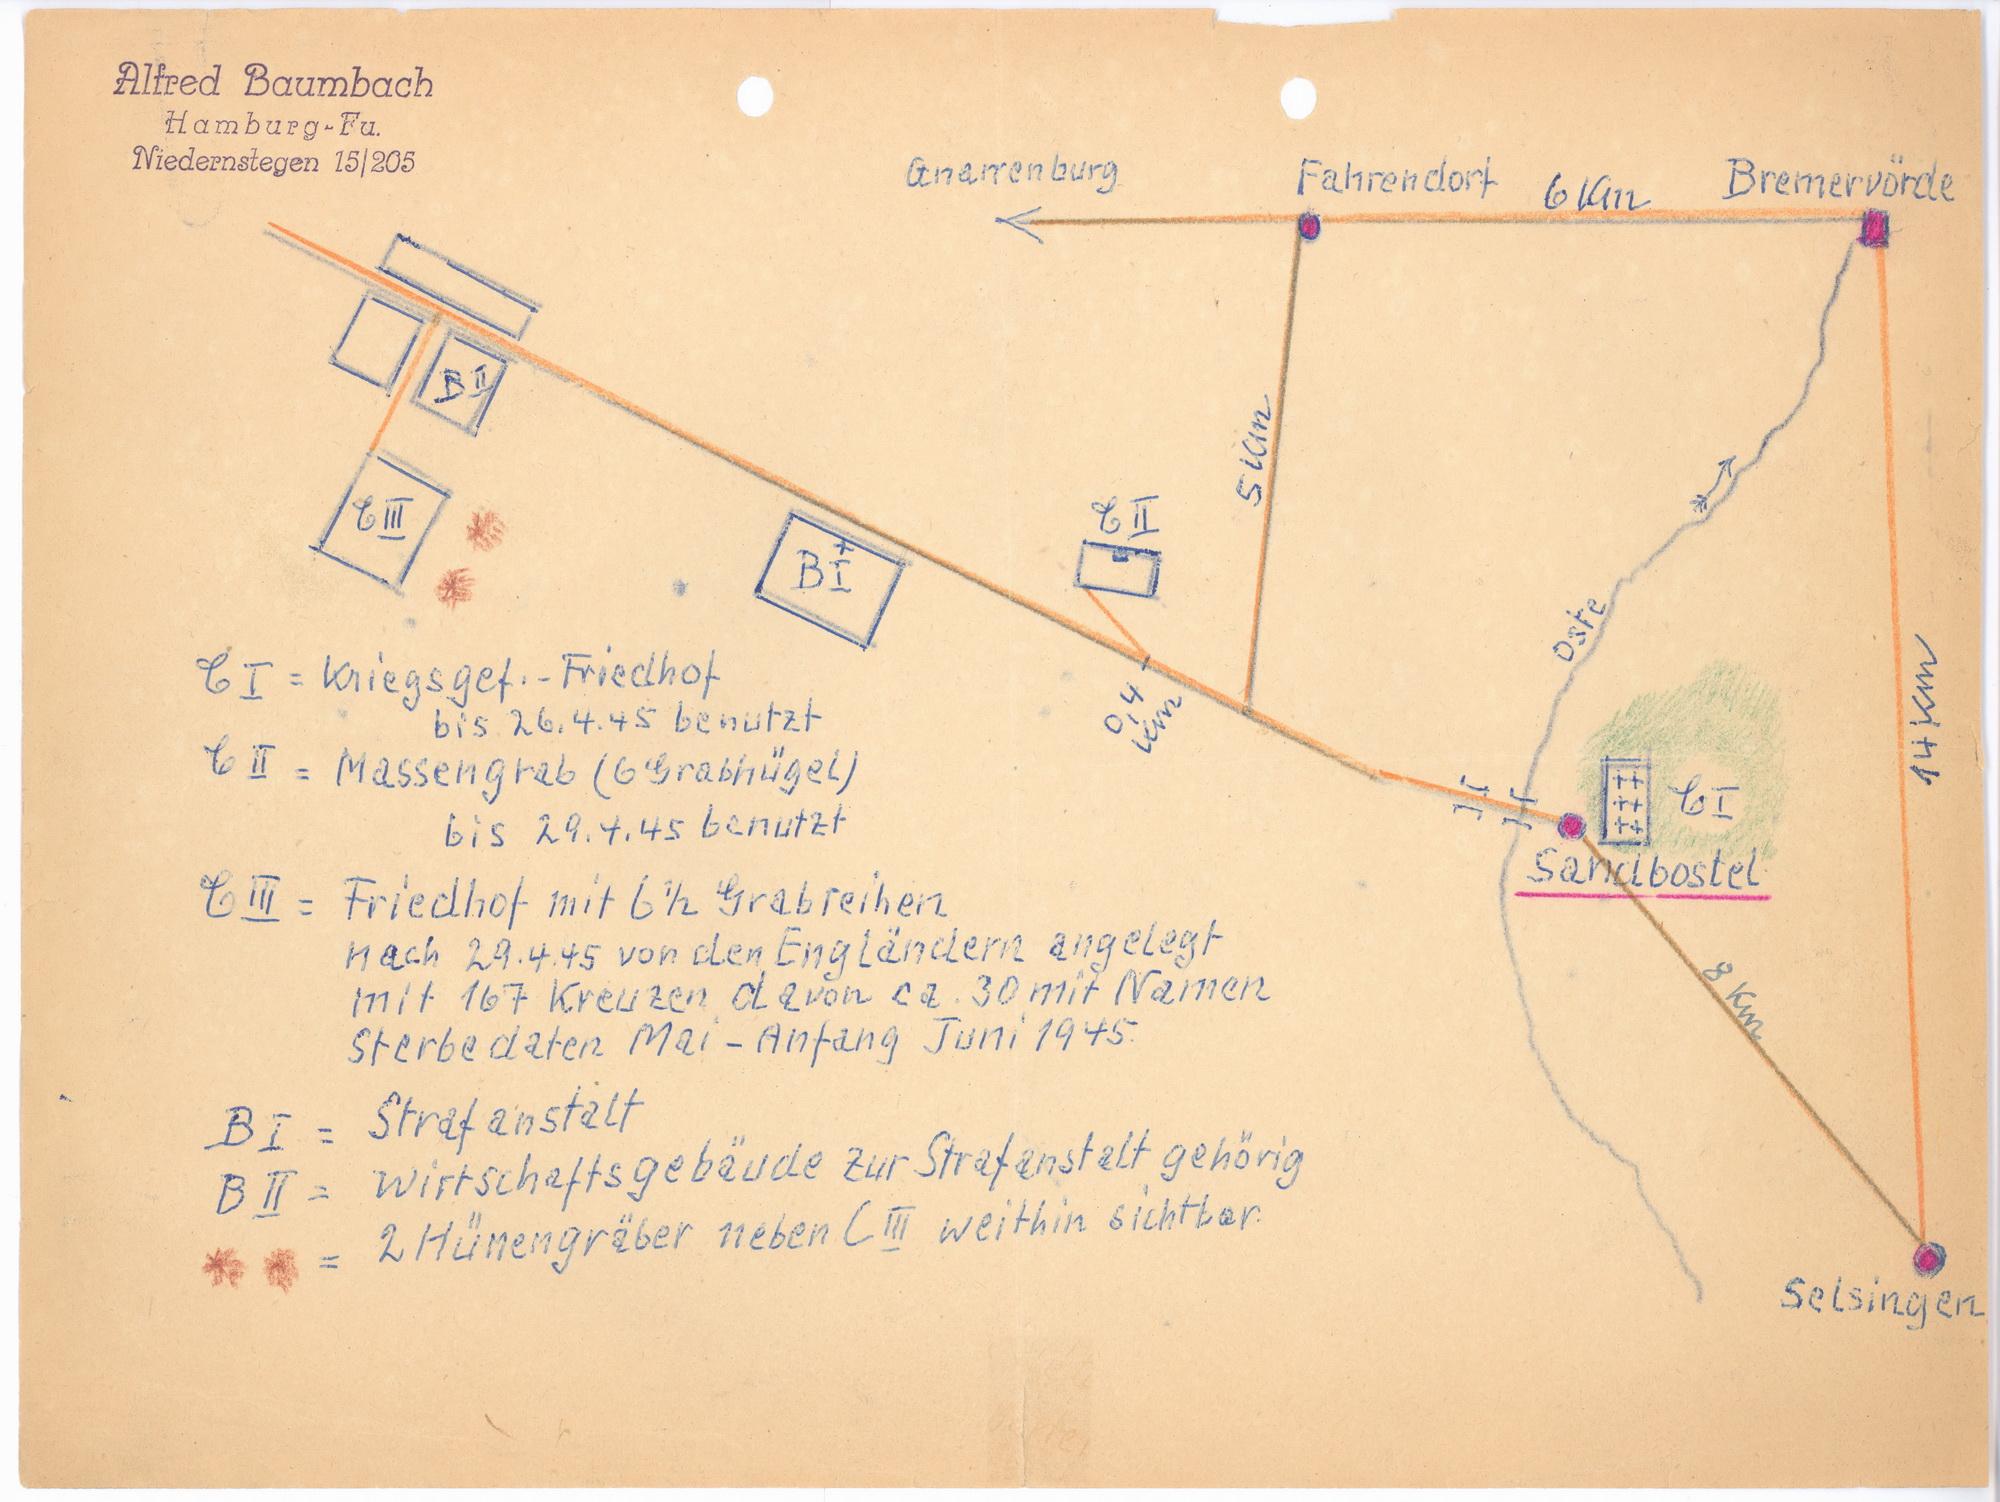 Alfred Baumbach
Hamburg-Fu.
Niedernstegen 15/205
Gnarrenburg
Fahrendorf
6 Km
Bremervörde
B II
C III
B I
C II
5 Km
0,4 Km
Oste
14 Km
C I
Sandbostel
8 Km
Selsingen
C I = Kriegsgef.-Friedhof
bis 26.4.45 benutzt
C II = Massengrab (6 Grabhügel)
bis 29.4.45 benutzt
C III = Friedhof mit 6½ Grabreihen
nach 29.4.45 von den Engländern angelegt
mit 167 Kreuzen davon ca. 30 mit Namen
Sterbedaten Mai - Anfang Juni 1945.
B I = Strafanstalt
B II = Wirtschaftsgebäude zur Strafanstalt gehörig
= 2 Hünengräber neben C III weithin sichtbar.